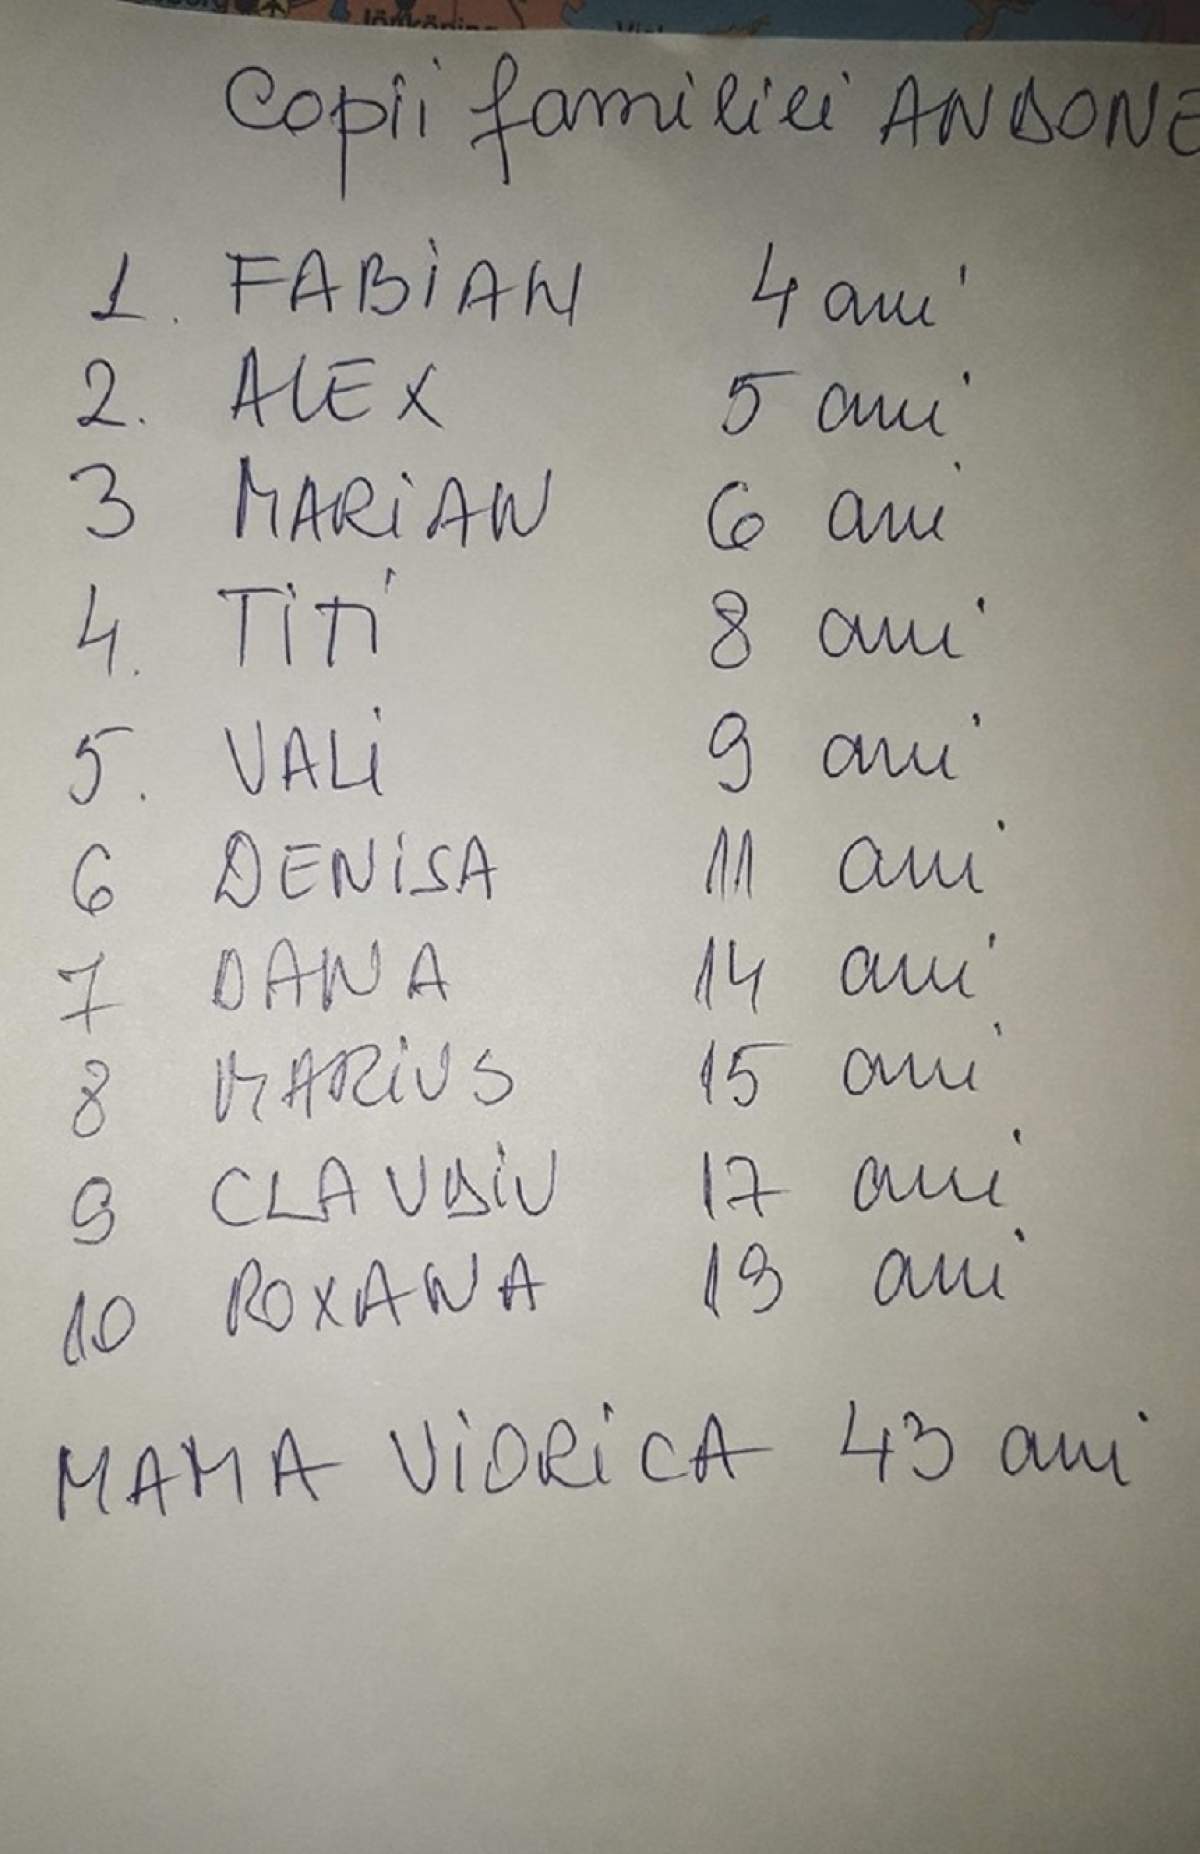 Jönköping
Copii familiei ANDONE
1. FABIAN 4 ani
2. ALEX 5 ani
3 MARIAN 6 ani
4. TITI 8 ani
5. VALI 9 ani
6 DENISA 11 ani
7 DANA 14 ani
8 MARIUS 15 ani
9 CLAUDIU 17 ani
10 ROXANA 19 ani
MAMA VIORICA 43 ani